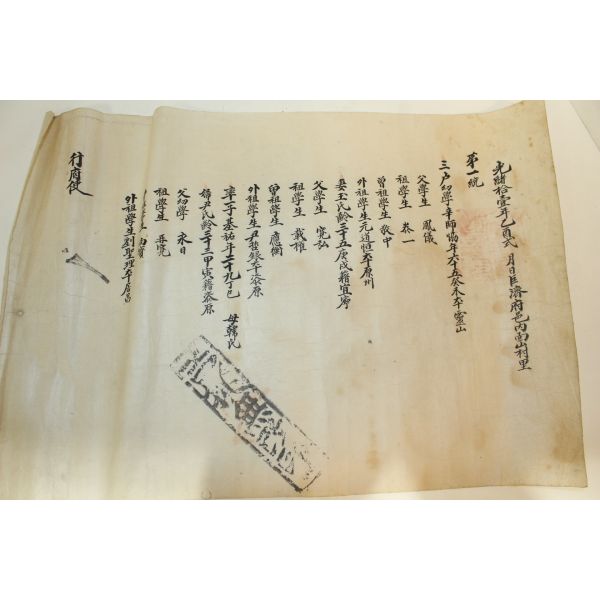 光緖拾壹年乙酉式 月日巨濟府邑內面山村里
第一統
三戶幼學辛師協年六十五癸未本靈山
父學生 鳳儀
祖學生 泰一
曾祖學生 敬中
外祖學生元道恒本原州
妻玉氏齡三十五庚戌籍宜寧
父學生 寬弘
祖學生 載權
曾祖學生 應衡
外祖學生尹哲銀本漆原
率子基祐年二十九丁巳 母韓氏
婦尹氏齡三十二甲寅籍漆原
父幼學 永日
祖學生 再寬
外祖學生劉聖理本居昌
行府使